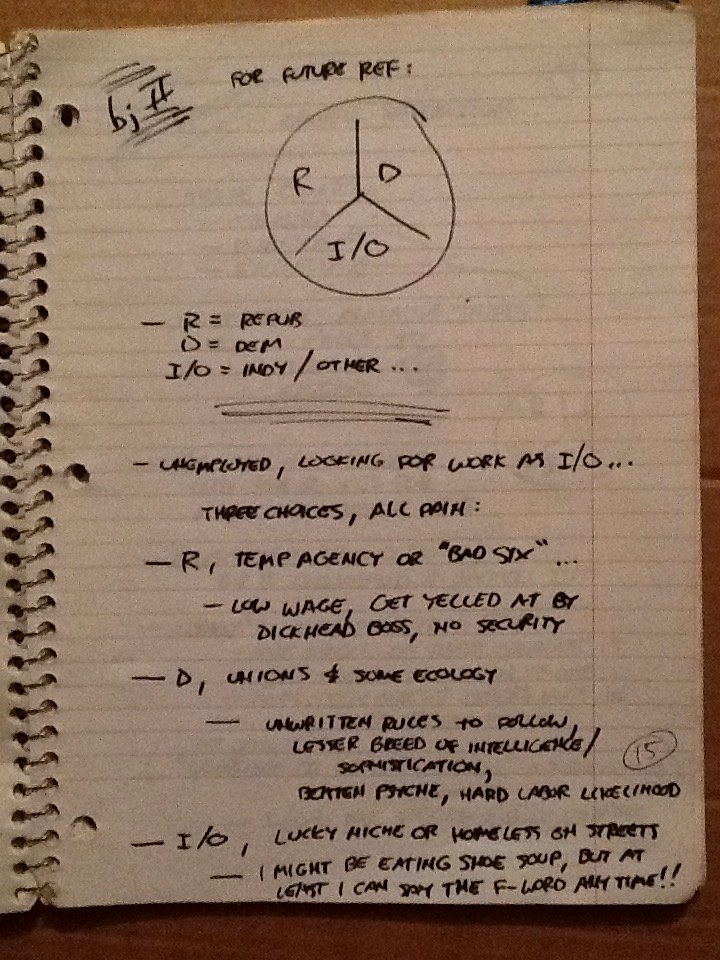 bj II
FOR FUTURE REF:
R
D
I/O
— R = REPUB
D = DEM
I/O = INDY / OTHER ...
- UNEMPLOYED, LOOKING FOR WORK AS I/O...
THREE CHOICES, ALL PAIN:
— R, TEMP AGENCY OR "BAD SIX" ...
- LOW WAGE, GET YELLED AT BY
DICKHEAD BOSS, NO SECURITY
— D, UNIONS & SOME ECOLOGY
— UNWRITTEN RULES TO FOLLOW,
LESSER BREED OF INTELLIGENCE/
SOPHISTICATION,
15
BEATEN PSYCHE, HARD LABOR LIKELIHOOD
— I/O, LUCKY NICHE OR HOMELESS ON STREETS
— I MIGHT BE EATING SHOE SOUP, BUT AT
LEAST I CAN SAY THE F-WORD ANY TIME!!